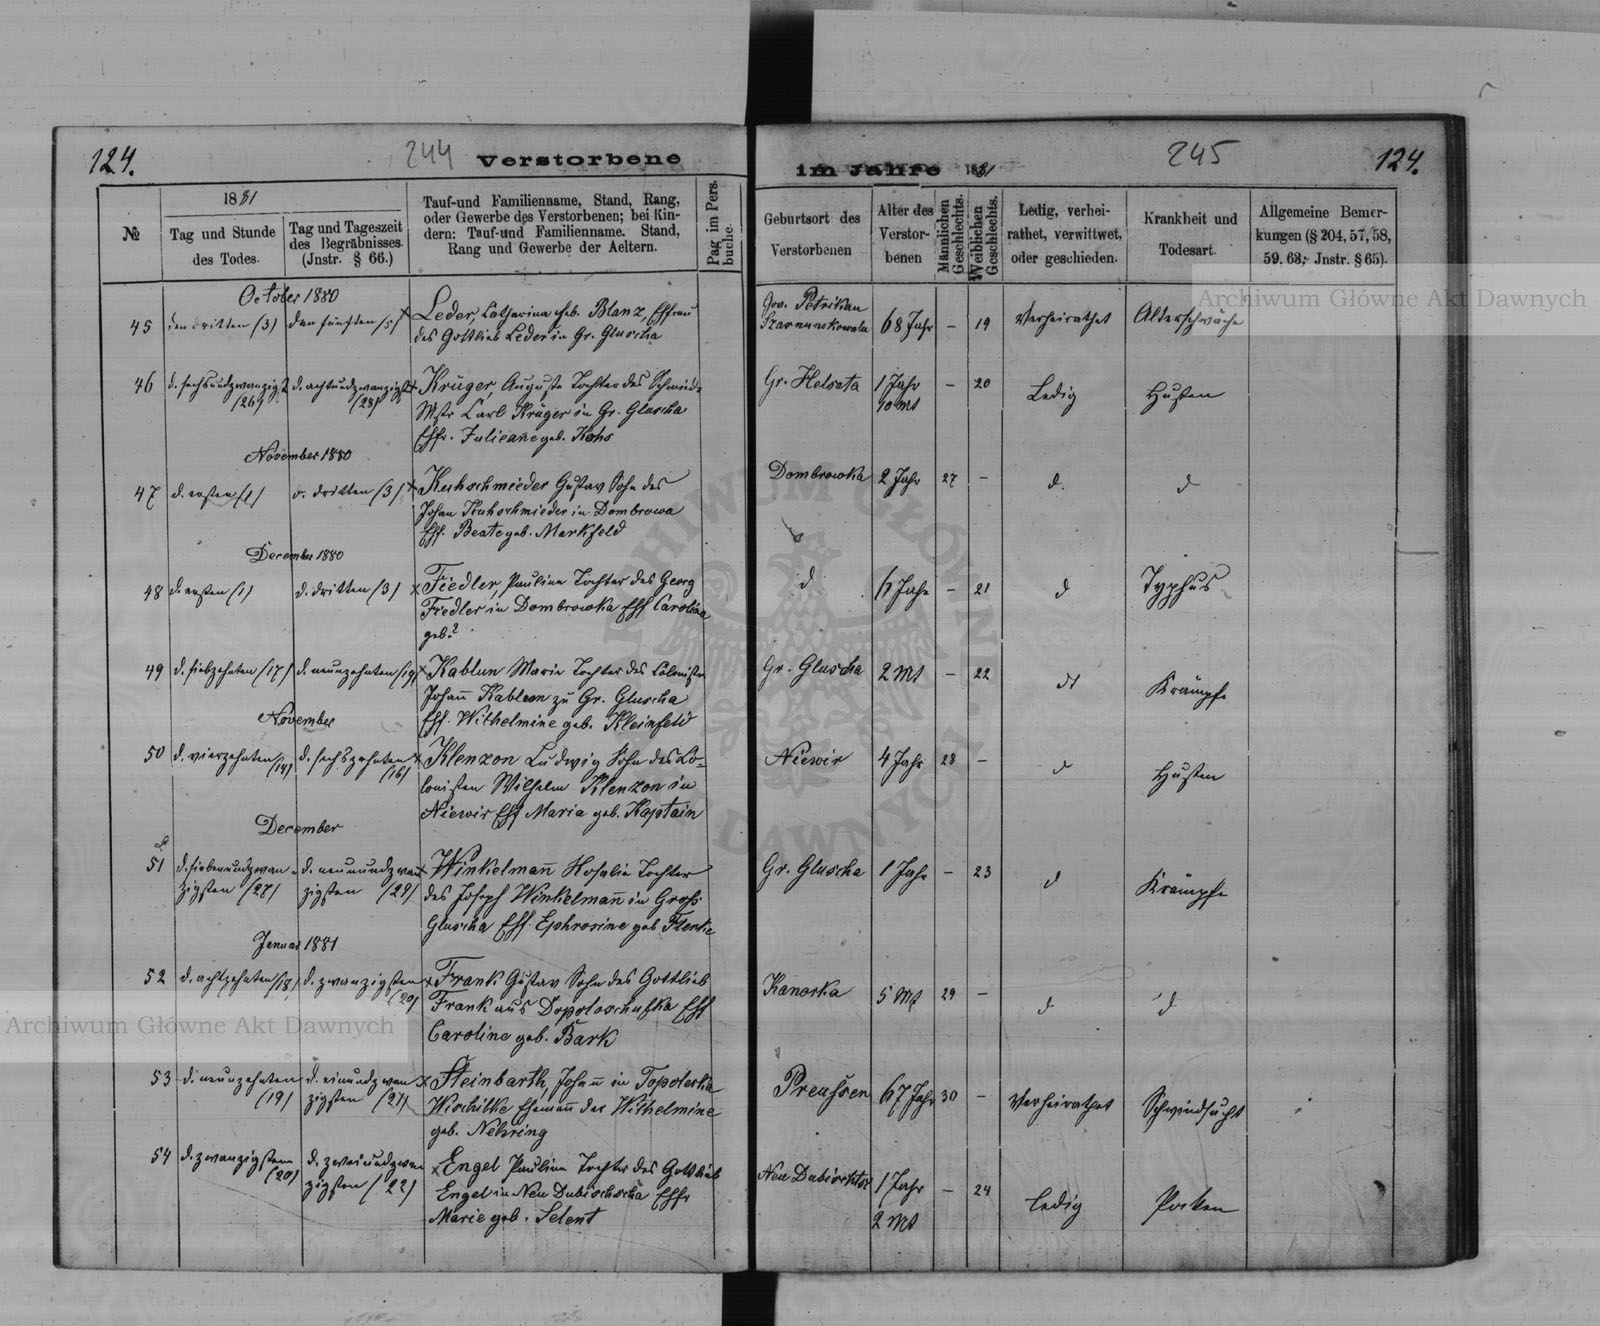 124.
244
Verstorbene
№
1881
Tag und Stunde
des Todes.
Tag und Tageszeit
des Begräbnisses.
(Jnstr. § 66.)
Tauf-und Familienname, Stand, Rang,
oder Gewerbe des Verstorbenen; bei Kin-
dern: Tauf-und Familienname. Stand,
Rang und Gewerbe der Aeltern.
Pag im Pers.
buche.
October 1880
45 den dritten (3) den fünften (5) × Leder, Catharina geb. Blanz, Ehfrau
des Gottlieb Leder in Gr. Gluscha
46 d. sechsundzwanzigst d. achtundzwanzigst × Krüger, Auguste Tochter des Schmiede
(26) (28) Mstr Carl Krüger in Gr. Gluscha
Ehfr. Julieane geb. Kohs
November 1880
47 d. ersten (1) d. dritten (3) × Kuhschmieder Gustav Sohn des
Johan Kuhschmieder in Dombrowa
Ehf. Beate geb. Markfeld
December 1880
48 d. ersten (1) d. dritten (3) × Fiedler, Pauline Tochter des Georg
Fiedler in Dombrowka Ehf Carolina
geb?
49 d. siebzehnten (17) d. neunzehnten (19) × Kablun Marie Tochter des Colonisten
Johann Kableon zu Gr. Gluscha
November Ehf. Wilhelmine geb. Kleinfeld
50 d. vierzehnten (14) d. sechszehnten (16) × Klenzon Ludwig Sohn des Co-
lonisten Wilhelm Klenzon in
Niewir Ehf Maria geb. Kaptain
December
51 d. siebenundzwan- d. neunundzwan × Winkelmañ Rosalie Tochter
zigsten (27) zigsten (29) des Joseph Winkelmañ in Groß
Gluscha Ehf. Ephrosine geb
Januar 1881
52 d. achtzehnten (18) d. zwanzigsten (20) × Frank Gustav Sohn des Gottlieb
Frank aus Ehf
Caroline geb. Bark
53 d. neunzehnten d. einundzwan × Steinbarth, Johañ in
(19) zigsten (21) Ehemañ der Wilhelmine
geb. Nehring
54 d. zwanzigsten d. zweiundzwan × Engel Pauline Tochter des Gottlieb
(20) zigsten (22) Engel in Neu Ehfr
Marie geb. Selent
im Jahre 1881
245
124.
Geburtsort des
Verstorbenen
Alter des
Verstor-
benen
Männlichen
Geschlechts.
Weiblichen
Geschlechts.
Ledig, verhei-
rathet, verwittwet,
oder geschieden.
Krankheit und
Todesart.
Allgemeine Bemer-
kungen (§ 204, 57, 58,
59. 63; Jnstr. § 65).
Gov. Petrikau
68 Jahr – 19 Verheirathet Alterschwäche
Gr. Helsata 1 Jahr – 20 Ledig Husten
10 Mt
Dombrowka 2 Jahr 27 – d. d
d 6 Jahr – 21 d Typhus
Gr. Gluscha 2 Mt – 22 dt Krämpfe
Niewir 4 Jahr 28 – d Husten
Gr. Gluscha 1 Jahr – 23 d Krämpfe
Kanorka 5 Mt 29 – d d
Preußen 67 Jahr 30 – Verheirathet Schwindsucht
Neu 1 Jahr – 24 Ledig Pocken
2 Mt
Archiwum Główne Akt Dawnych
Archiwum Główne Akt Dawnych
ARCHIWUM GŁÓWNE
DAWNYCH